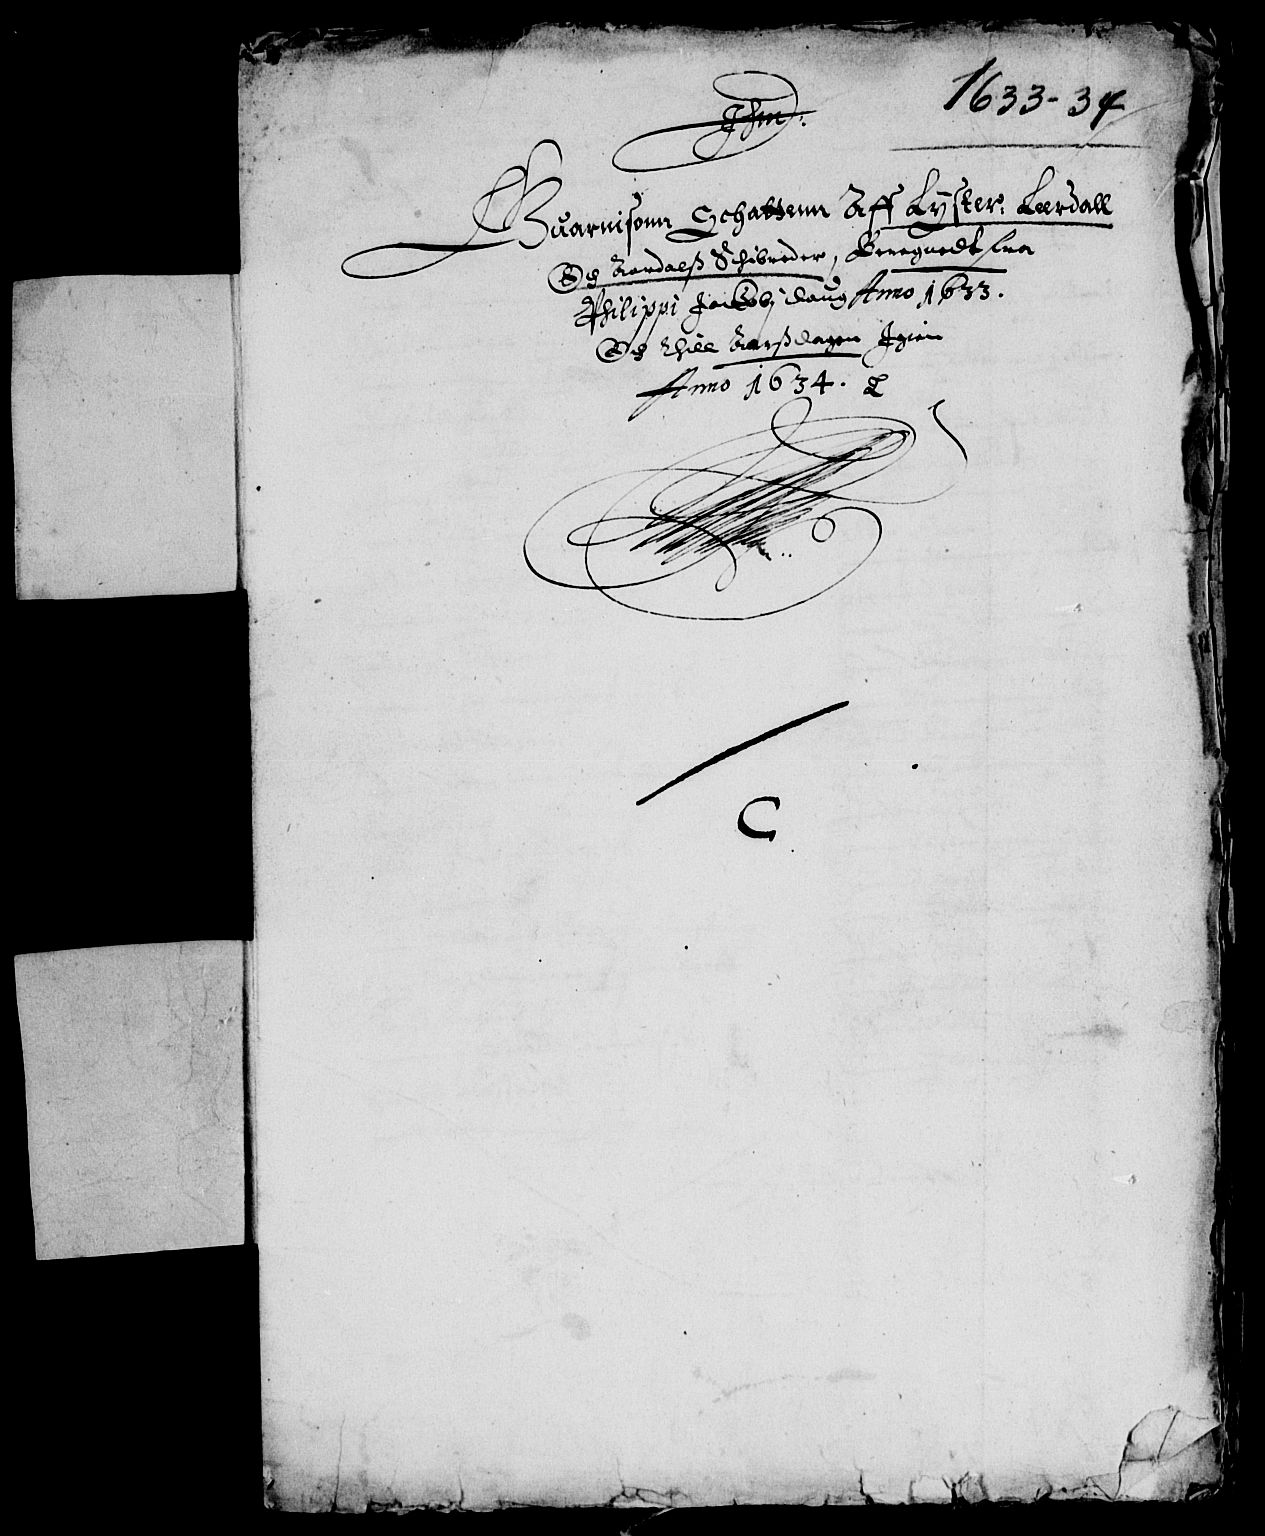 1633-34
Jhm:
Guarnisonn Schattenn Aff Lÿster: Leerdall
Och Aardalß Schibreder, Beregnedt fra
Philippi Jacobj daug Anno 1633.
Och thill Aarßdagen Jgien
Anno 1634.
C